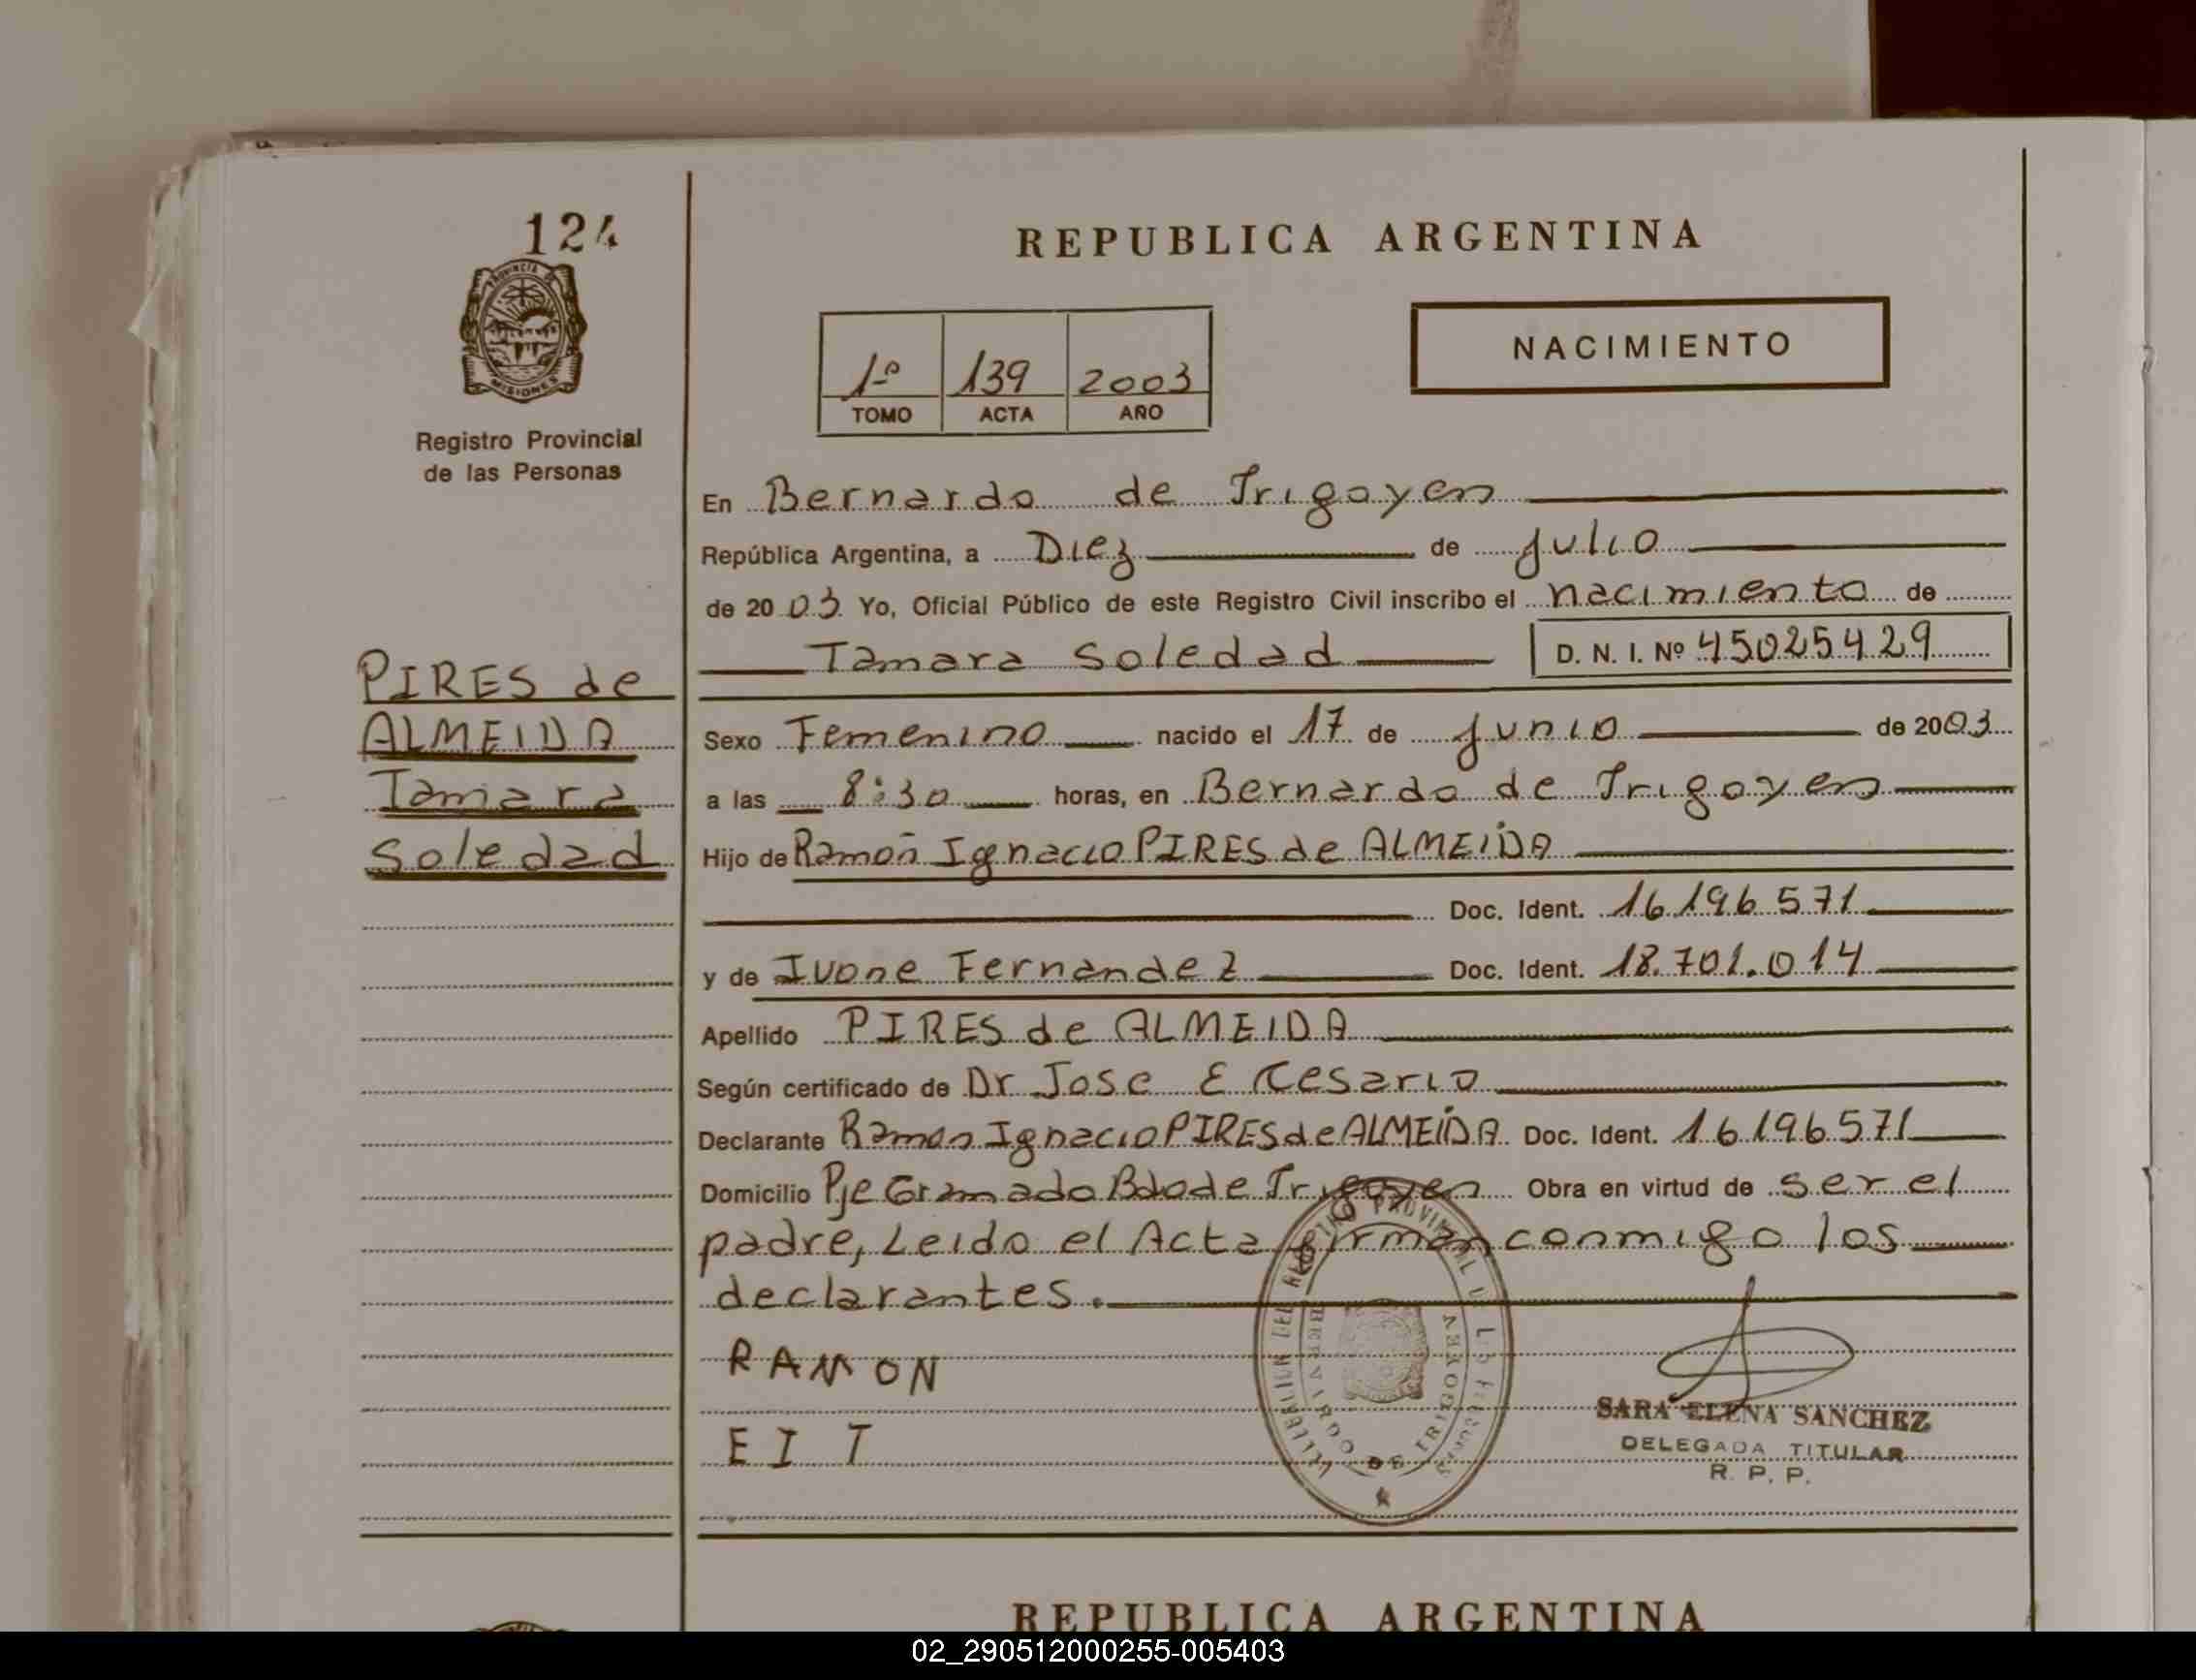 124
PROVINCIA DE
MISIONES
Registro Provincial
de las Personas
PIRES de
ALMEIDA
Tamara
Soledad
REPUBLICA ARGENTINA
1º 139 2003
TOMO ACTA AÑO
NACIMIENTO
En Bernardo de Irigoyen
República Argentina, a Diez de Julio
de 2003 Yo, Oficial Público de este Registro Civil inscribo el nacimiento de
Tamara Soledad D. N. I. Nº 45025429
Sexo Femenino nacido el 17 de Junio de 2003
a las 8:30 horas, en Bernardo de Irigoyen
Hijo de Ramón Ignacio PIRES de ALMEIDA
Doc. Ident. 16196571
y de Ivone Fernandez Doc. Ident. 18.701.014
Apellido PIRES de ALMEIDA
Según certificado de Dr Jose E Cesario
Declarante Ramon Ignacio PIRES de ALMEIDA Doc. Ident. 16196571
Domicilio Pje Gramado Bdo de Irigoyen Obra en virtud de ser el
padre, Leido el Acta firman conmigo los
declarantes.
RAMON
EIT
BERNARDO DE IRIGOYEN
SARA ELENA SANCHEZ
DELEGADA TITULAR
R. P. P.
REPUBLICA ARGENTINA
02_290512000255-005403